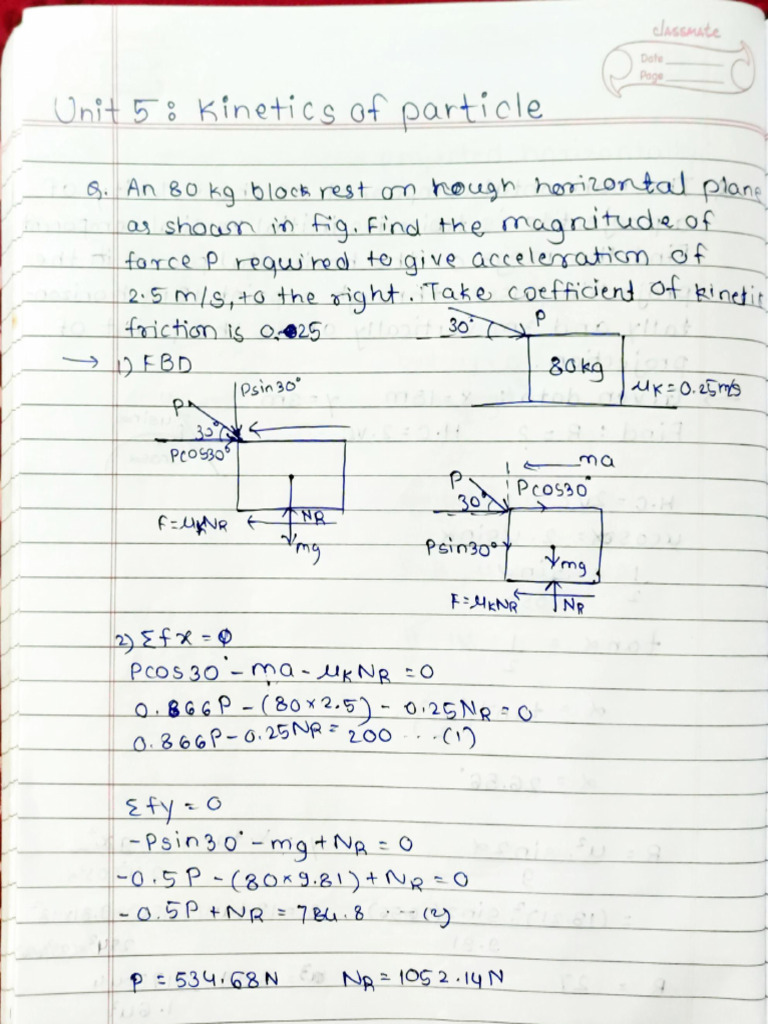 classmate
Date
Page
Unit 5: Kinetics of particle
Q. An 80 kg block rest on rough horizontal plane
as shown in fig. Find the magnitude of
force P required to give acceleration of
2.5 m/s, to the right. Take coefficient of kinetic
friction is 0.25
→ 1) FBD
30° P
80kg
μK = 0.25 m/s
Psin30°
P
30°
Pcos30°
F=μKNR
NR
mg
ma
P
Pcos30°
30°
Psin30°
mg
F=μKNR
NR
2) Σfx = 0
Pcos30° - ma - μKNR = 0
0.866P - (80×2.5) - 0.25NR = 0
0.866P - 0.25NR = 200 ... (1)
Σfy = 0
-Psin30° - mg + NR = 0
-0.5P - (80×9.81) + NR = 0
-0.5P + NR = 784.8 ... (2)
P = 534.68N NR = 1052.14N